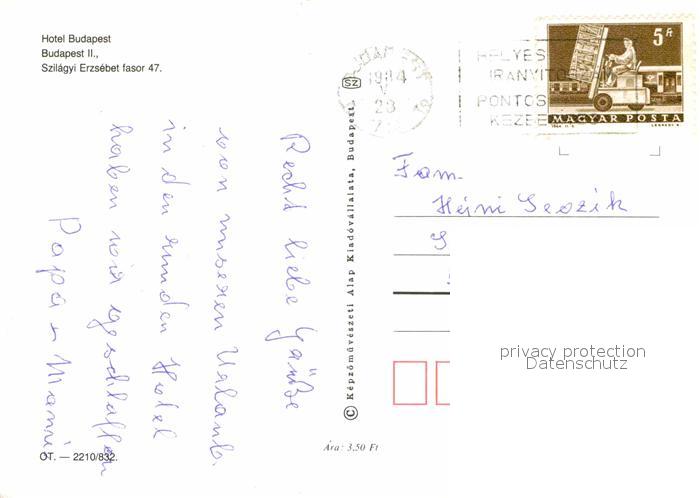 Hotel Budapest
Budapest II.,
Szilágyi Erzsébet fasor 47.
Recht liebe Grüße
von unseren Urlaub.
in den runden Hotel
haben wir geschlaffen
Papa u Mami
ÓT. — 2210/832.
© Képzőművészeti Alap Kiadóvállalata, Budapest.
SZ
Ára: 3,50 Ft
1984
V
23
HELYES
IRÁNYÍTÓSZÁM
PONTOS
KÉZBE
5 Ft
MAGYAR POSTA
Fam.
Heini
privacy protection
Datenschutz